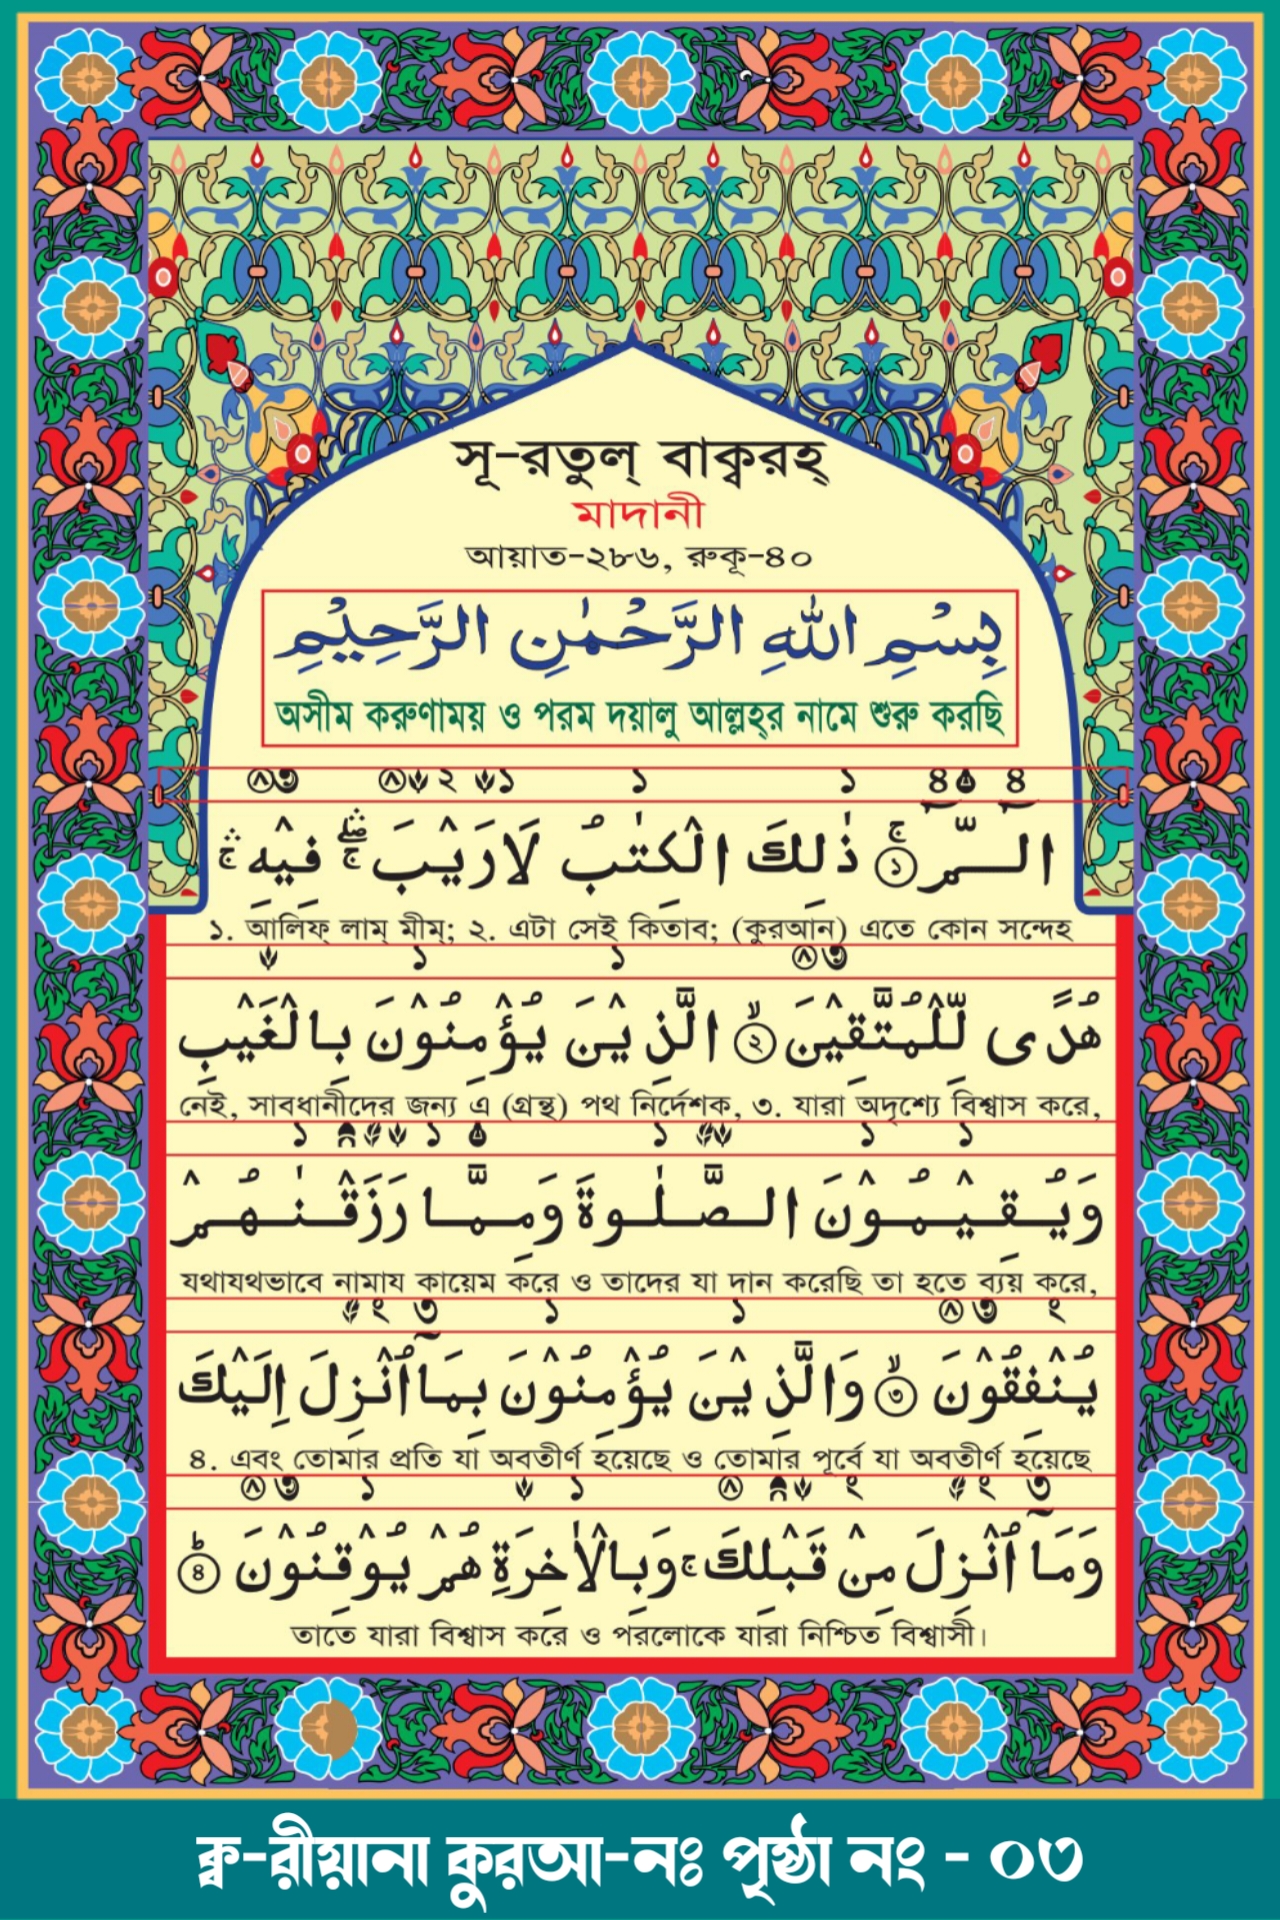 সূ-রতুল্ বাক্বরহ্
মাদানী
আয়াত-২৮৬, রুকূ-৪০
بِسْمِ اللهِ الرَّحْمٰنِ الرَّحِيْمِ
অসীম করুণাময় ও পরম দয়ালু আল্লহ্‌র নামে শুরু করছি
الٓـمّٓ ۚ۝۱ ذٰلِكَ الْكِتٰبُ لَارَيْبَ ۛۖۚ فِيْهِ ۛۚ
১. আলিফ্ লাম্ মীম্; ২. এটা সেই কিতাব; (কুরআন) এতে কোন সন্দেহ
هُدًى لِّلْمُتَّقِيْنَ ۙ۝۲ الَّذِيْنَ يُؤْمِنُوْنَ بِالْغَيْبِ
নেই, সাবধানীদের জন্য এ (গ্রন্থ) পথ নির্দেশক, ৩. যারা অদৃশ্যে বিশ্বাস করে,
وَيُقِيْمُوْنَ الصَّلٰوةَ وَمِمَّا رَزَقْنٰهُمْ
যথাযথভাবে নামায কায়েম করে ও তাদের যা দান করেছি তা হতে ব্যয় করে,
يُنْفِقُوْنَ ۙ۝۳ وَالَّذِيْنَ يُؤْمِنُوْنَ بِمَآ اُنْزِلَ اِلَيْكَ
৪. এবং তোমার প্রতি যা অবতীর্ণ হয়েছে ও তোমার পূর্বে যা অবতীর্ণ হয়েছে
وَمَآ اُنْزِلَ مِنْ قَبْلِكَ ۚ وَبِالْاٰخِرَةِ هُمْ يُوْقِنُوْنَ ؕ۝۴
তাতে যারা বিশ্বাস করে ও পরলোকে যারা নিশ্চিত বিশ্বাসী।
ক্ব-রীয়ানা কুরআ-নঃ পৃষ্ঠা নং - ০৩